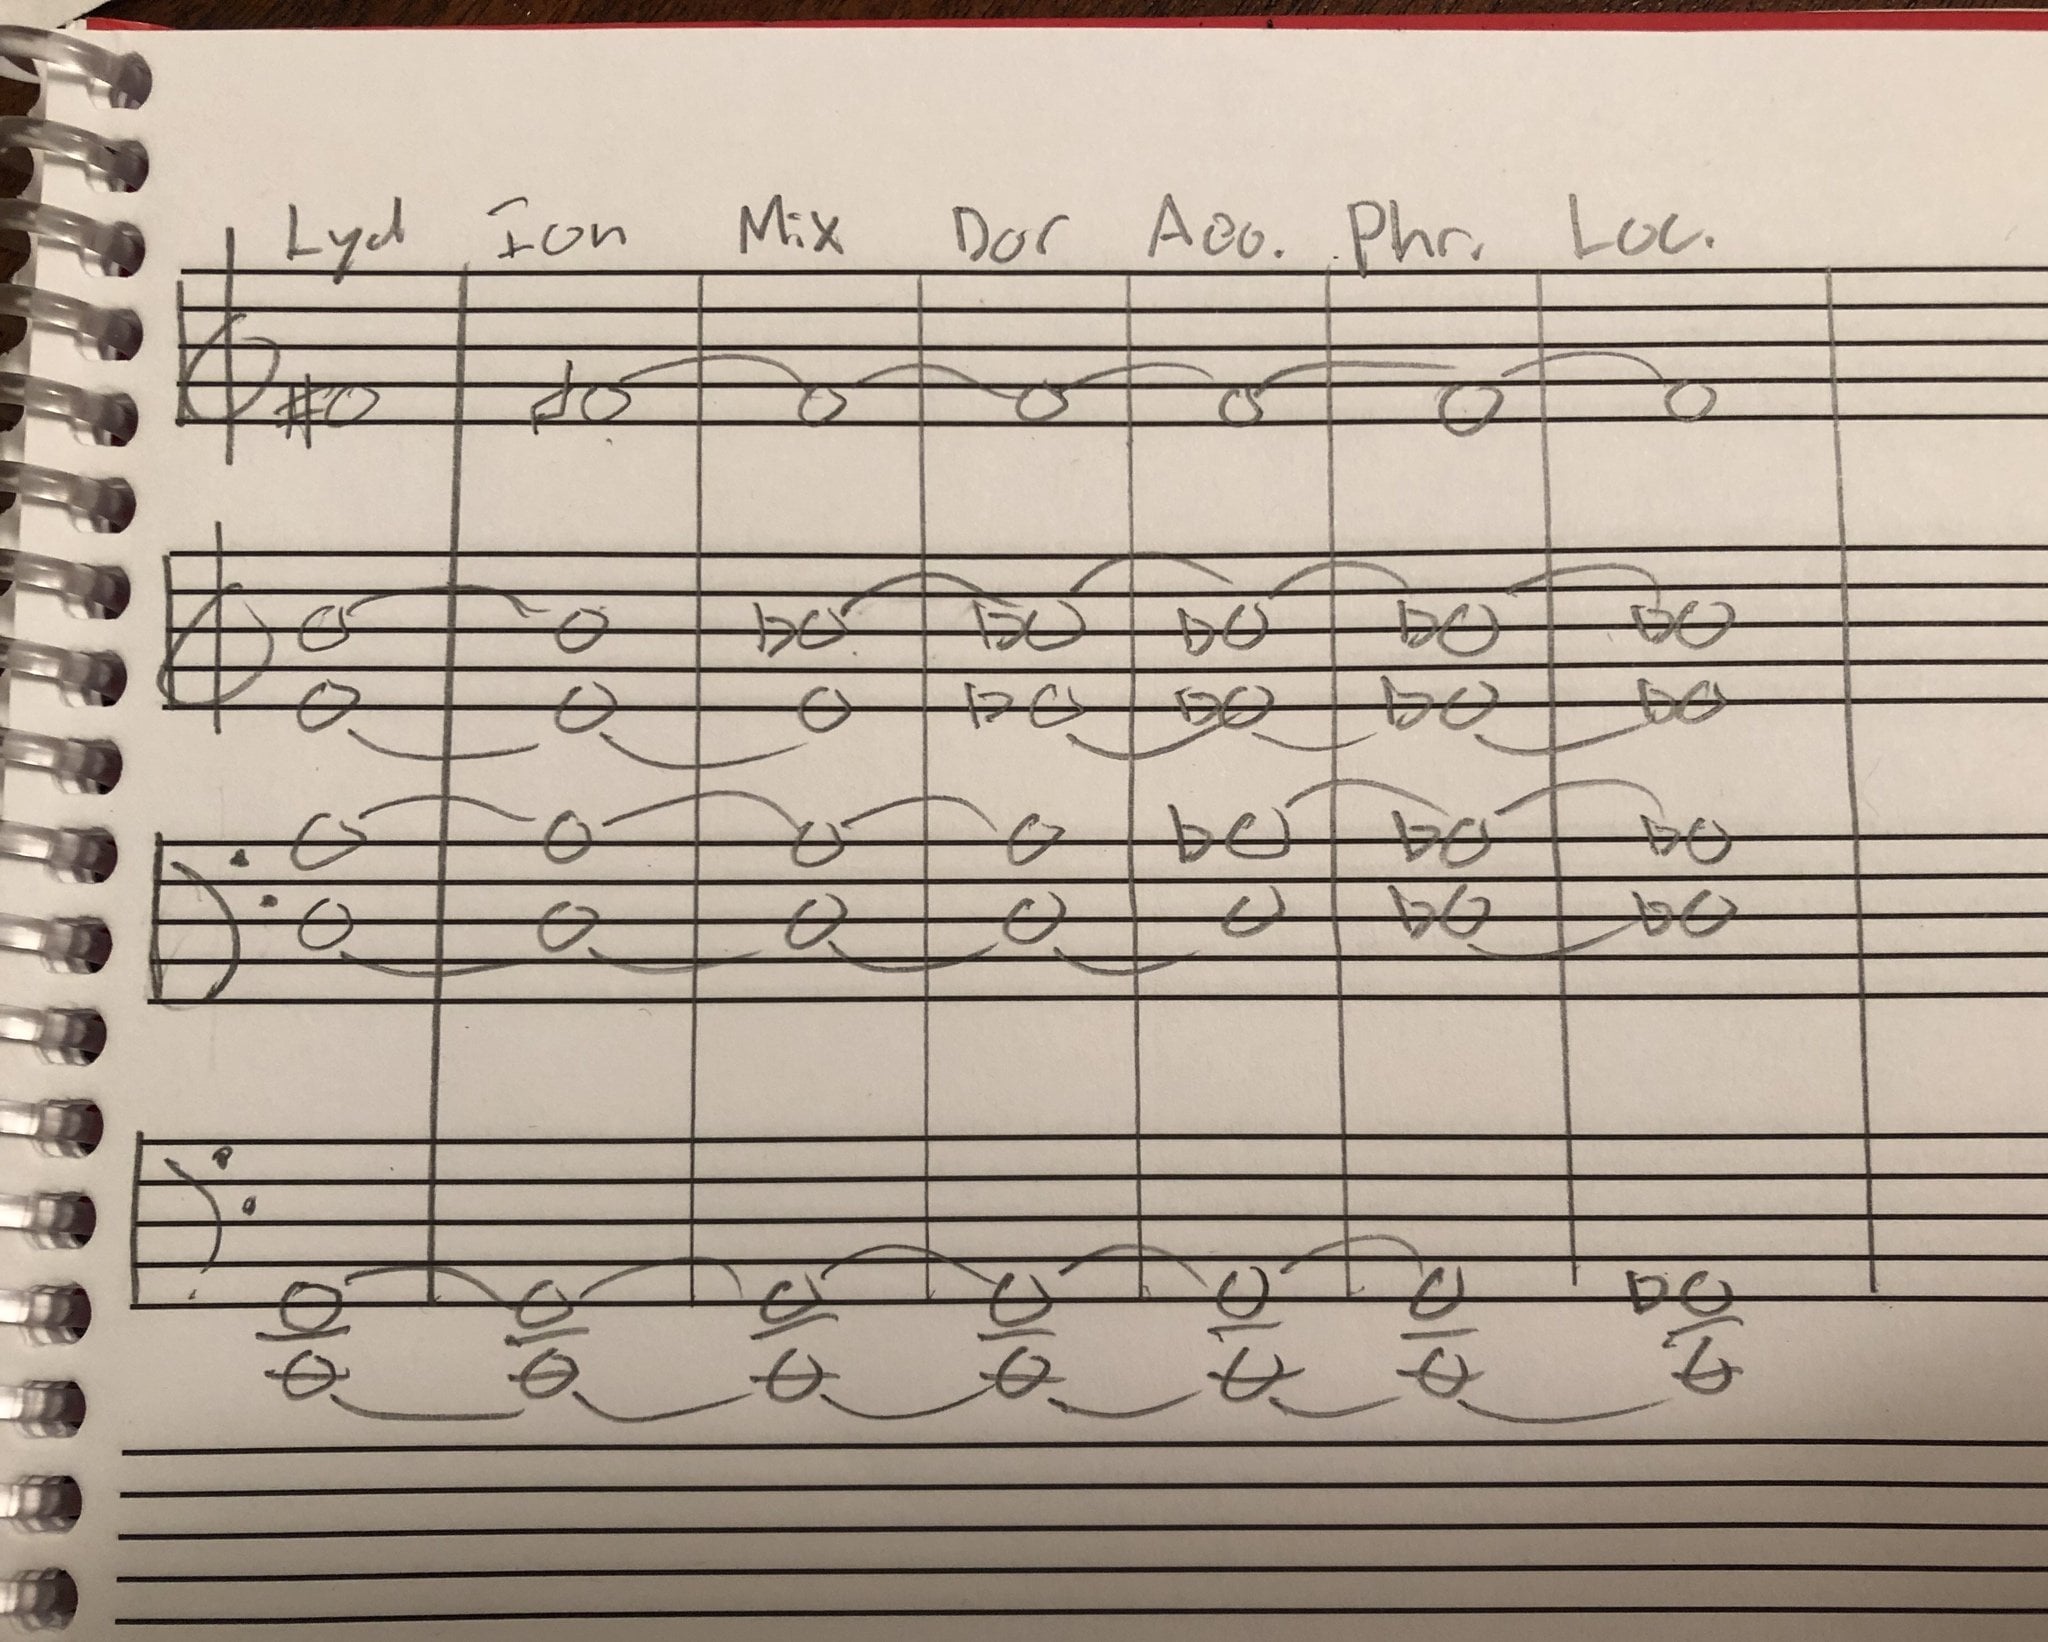 Lyd Ion Mix Dor Aeo. Phr. Loc.